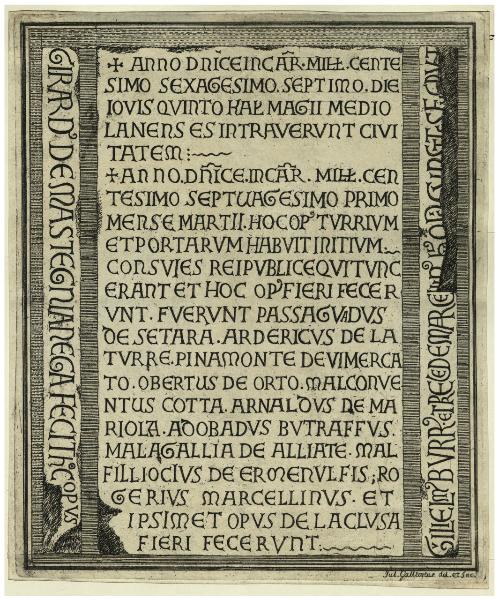 + ANNO DN̄ICE INCAR̄. MILŁ. CENTE
SIMO SEXAGESIMO. SEPTIMO. DIE
IOVIS QVINTO KAŁ MAGII MEDIO
LANENSES INTRAVERVNT CIVI
TATEM:
+ ANNO. DN̄ICE. INCAR̄. MILŁ. CEN
TESIMO SEPTUAGESIMO PRIMO
MENSE MARTII. HOC OPꝰ TVRRIVM
ET PORTARVM HABVIT INITIVM.
CONSVLES REIPVBLICE QVI TVNC
ERANT ET HOC OPꝰ FIERI FECER
VNT. FVERVNT PASSAGVADVS
DE SETARA. ARDERICVS DE LA
TVRRE. PINAMONTE DE VIMERCA
TO. OBERTUS DE ORTO. MALCONVE
NTUS COTTA. ARNALDVS DE MA
RIOLA. ADOBADVS BVTRAFFVS.
MALAGALLIA DE ALLIATE. MAL
FILLIOCIVS DE ERMENVLFIS; RO
GERIVS MARCELLINVS. ET
IPSIMET OPUS DE LA CLVSA
FIERI FECERVNT.
GIRARDꝰ DE MASTEGNIANEGA FECIT HC OPVS
GILIELMꝰ BVRR
Jul. Gallegar del. et Inc.